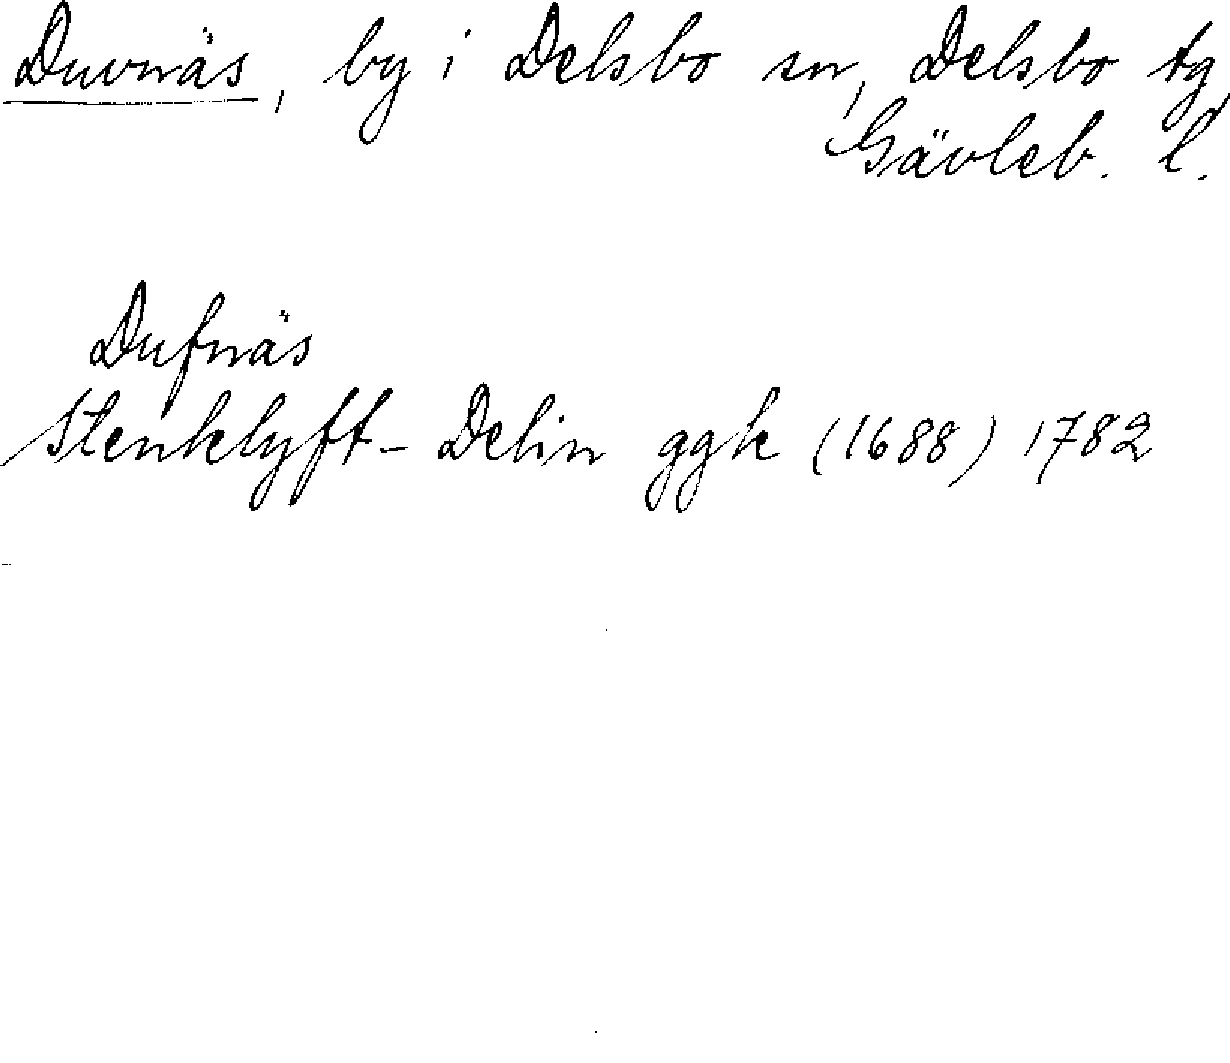 Duvnäs, by i Delsbo sn, Delsbo tg,
Gävleb. l.
Dufnäs
Stenklyft - Delin ggk (1688) 1782